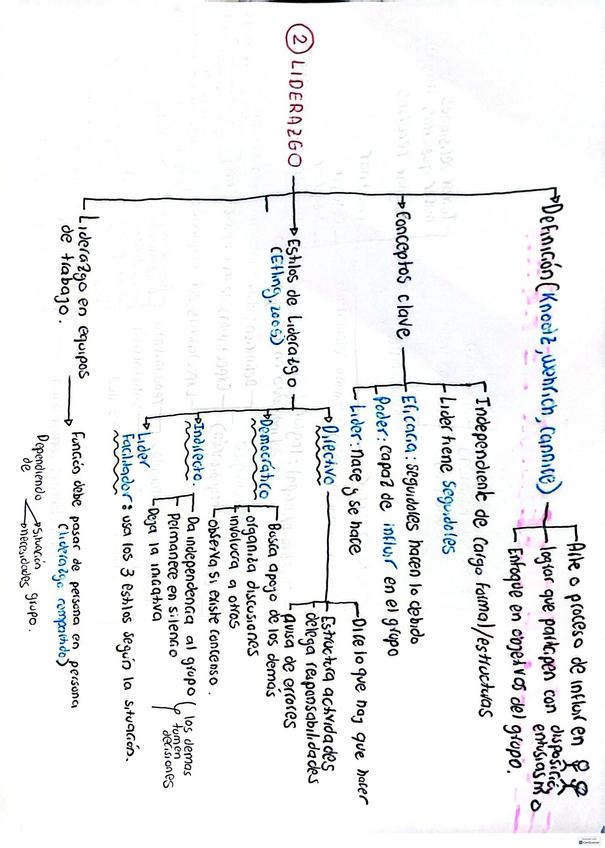 ② LIDERAZGO
Definición (Knootz, Wehrich, Cannice)
Arte o proceso de influir en
lograr que participen con disposición
entusiasmo
Enfoque en objetivos del grupo.
Conceptos clave
Independiente de cargo formal/estructuras
Lider tiene seguidores
Eficacia: seguidores hacen lo debido
Poder: capaz de influir en el grupo
Lider: nace y se hace
Estilos de Liderazgo
(Etling, 2005)
Directivo
Dice lo que hay que hacer
Estructura actividades
delega responsabilidades
avisa de errores
Democrático
Busca apoyo de los demás
organiza discusiones
involucra a otros
observa si existe concenso.
Indirecto
Da independencia al grupo (los demas
tomen
decisiones
Permanece en silencio
Deja la iniciativa
Lider
Facilitador: usa los 3 estilos según la situación.
Liderazgo en equipos
de trabajo.
Función debe pasar de persona en persona
(liderazgo compartido)
Dependiendo
de
situación
necesidades grupo.
CamScanner